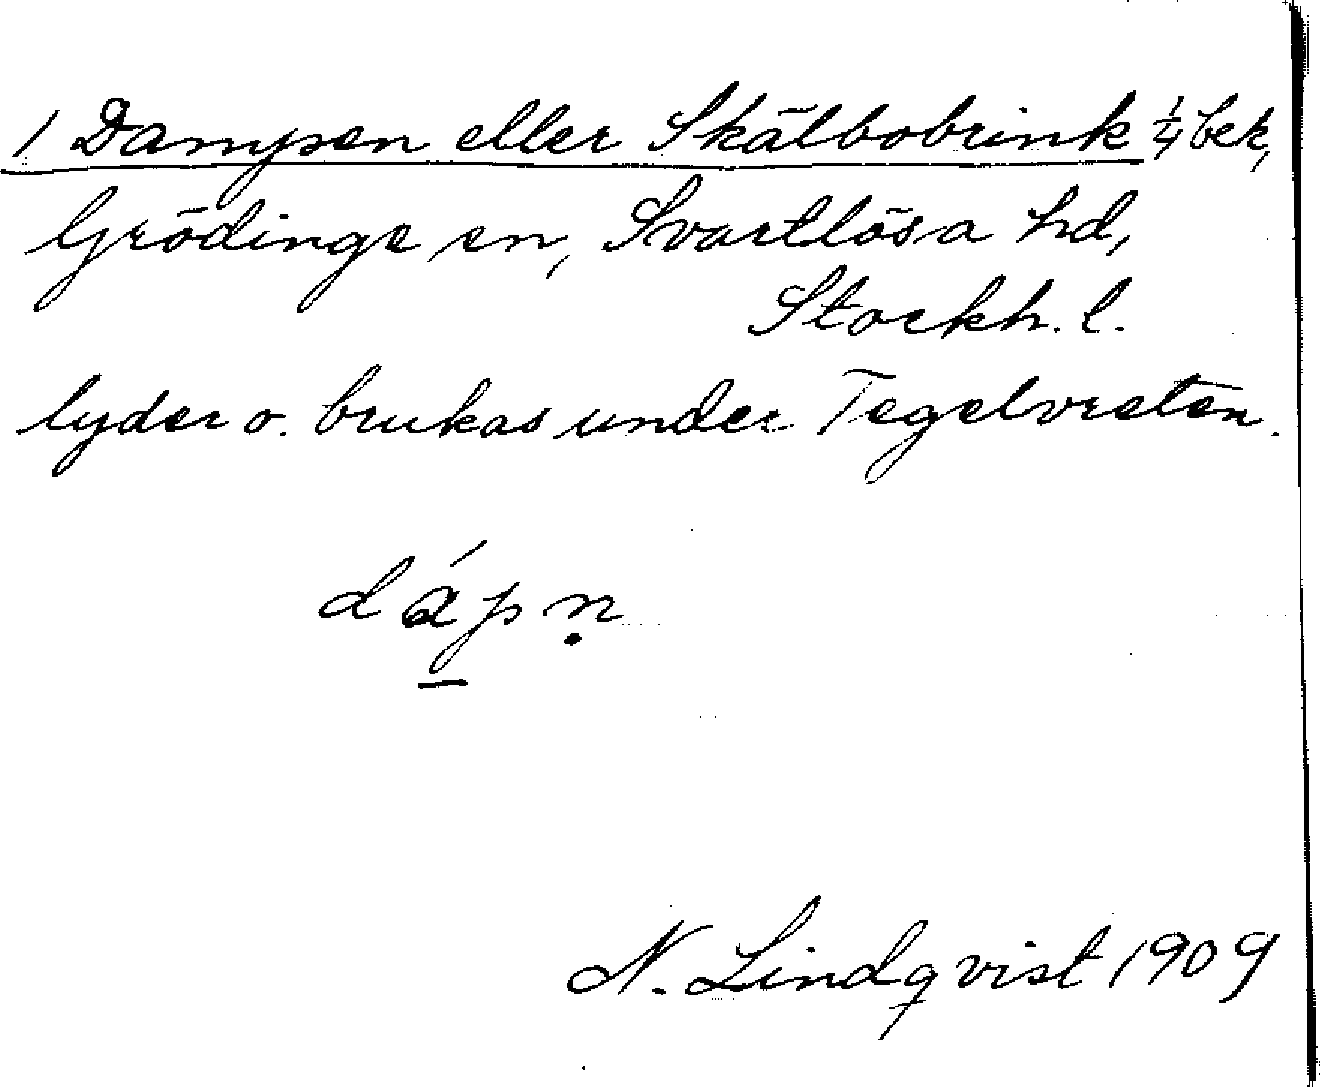 1 Dampen eller Skälbobrink ¼ bek,
Grödinge sn, Svartlösa hd,
Stockh. l.
lyder o. brukas under Tegelvreten.
dápṇ
N. Lindqvist 1909